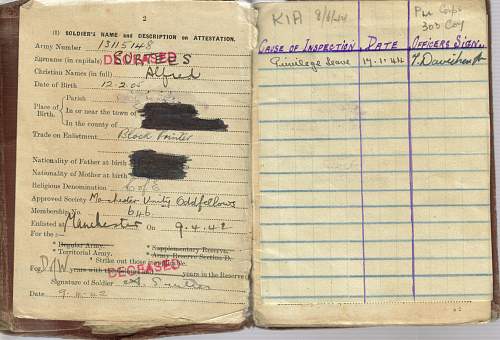 2
(1) SOLDIER'S NAME and DESCRIPTION on ATTESTATION.
Army Number 13115148
DECEASED
Surname (in capitals)
Christian Names (in full) Alfred
Date of Birth 12.2.
Place of Birth.
Parish
In or near the town of
In the county of
Trade on Enlistment Block Printer
Nationality of Father at birth
Nationality of Mother at birth
Religious Denomination C of E
Approved Society Manchester Unity Oddfellows
Membership No. 646
Enlisted at Manchester On 9.4.42
For the :—
* Regular Army. * Supplementary Reserve.
* Territorial Army. * Army Reserve Section D.
* Strike out those inapplicable.
For D of W years with the years in the Reserve
DECEASED
Signature of Soldier A.
Date 9.4.42
KIA 8/6/44
Pnr Corps
303 Coy
CAUSE OF INSPECTION. DATE. OFFICERS SIGN.
Privilege Leave 17.1.44